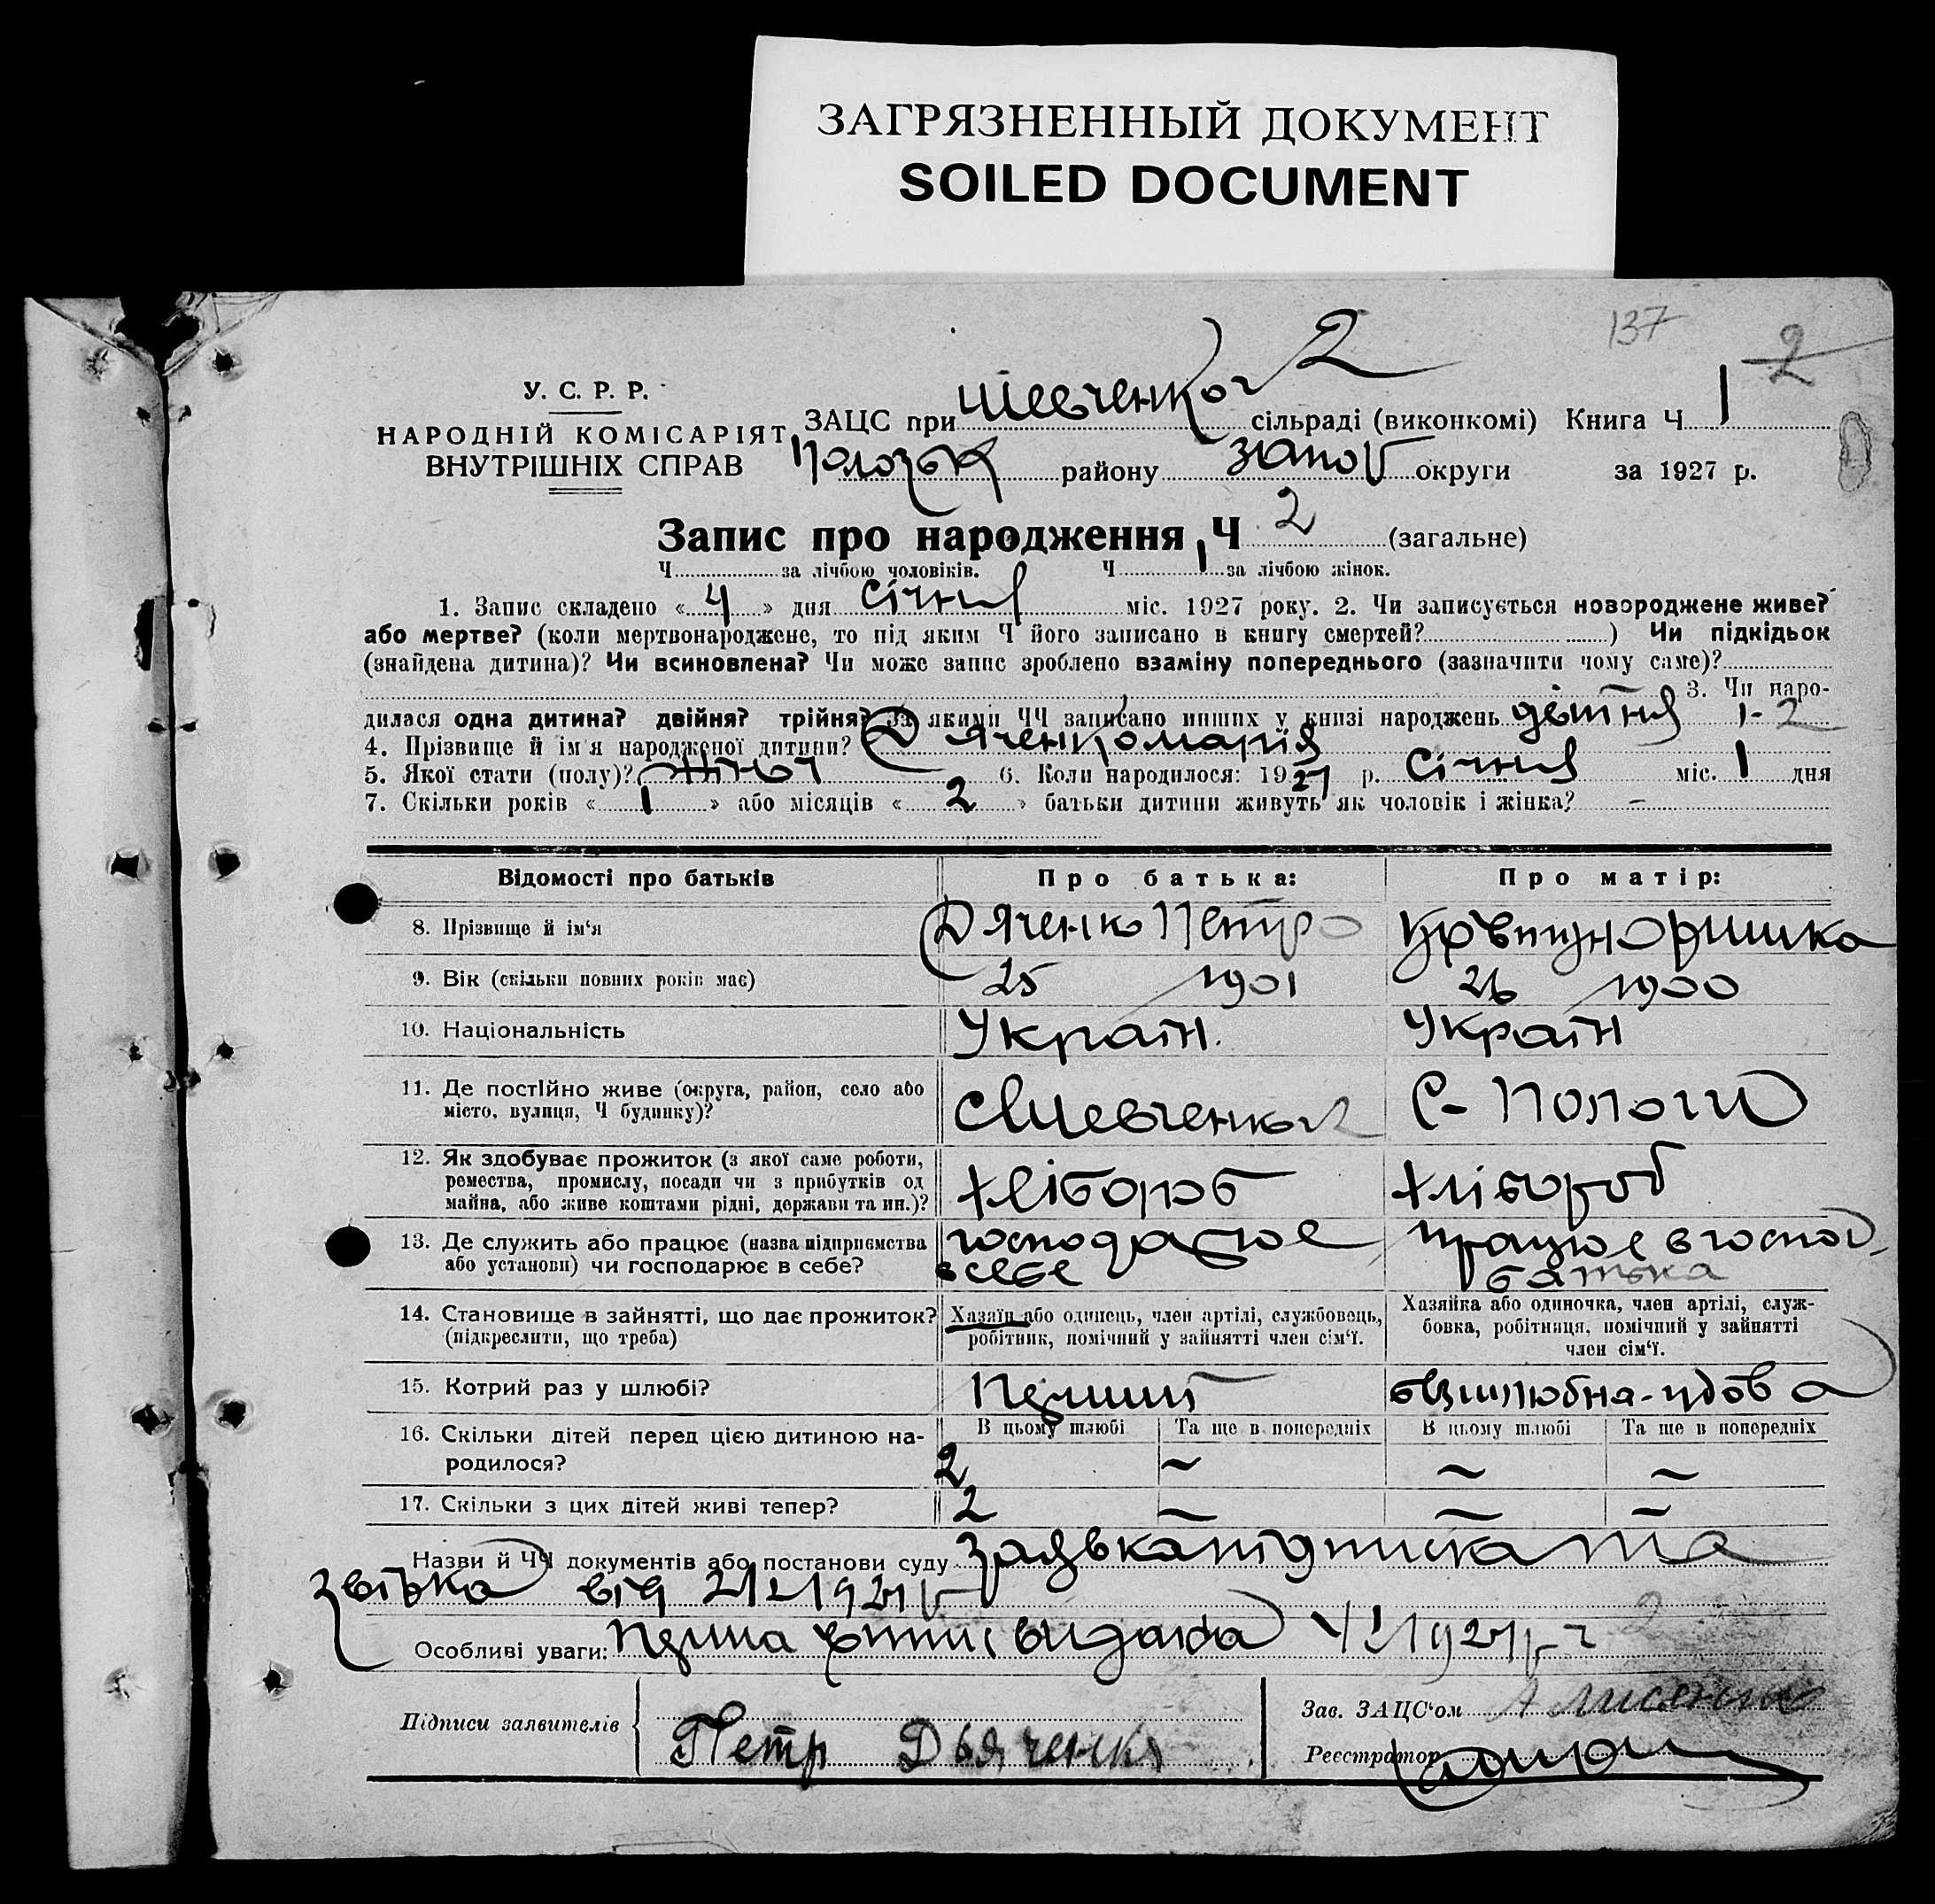 ЗАГРЯЗНЕННЫЙ ДОКУМЕНТ
SOILED DOCUMENT
137
2
2
У. С. Р. Р.
НАРОДНІЙ КОМІСАРІЯТ
ВНУТРІШНІХ СПРАВ
ЗАЦС при Шевченков сільраді (виконкомі) Книга Ч 1
Пологськ району Запор округи за 1927 р.
Запис про народження Ч 2 (загальне)
Ч за лічбою чоловіків. Ч 1 за лічбою жінок.
1. Запис складено « 4 » дня Січня міс. 1927 року. 2. Чи записується новороджене живе?
або мертве? (коли мертвонароджене, то під яким Ч його записано в книгу смертей? ) Чи підкідьок
(знайдена дитина)? Чи всиновлена? Чи може запис зроблено взаміну попереднього (зазначити чому саме)?
3. Чи наро-
дилася одна дитина? двійня? трійня? За якими ЧЧ записано инших у книзі народжень 1-2
4. Прізвище й ім'я народженої дитини? Дяченко Марія
5. Якої стати (полу)? жіноч 6. Коли народилося: 1927 р. Січня міс. 1 дня
7. Скільки років « 1 » або місяців « 2 » батьки дитини живуть як чоловік і жінка? –
Відомості про батьків Про батька: Про матір:
8. Прізвище й ім'я Дяченко Петро Оришка
9. Вік (скільки повних років має) 25 1901 26 1900
10. Національність Україн. Україн
11. Де постійно живе (округа, район, село або
місто, вулиця, Ч будинку)? С Шевченков С- Пологи
12. Як здобуває прожиток (з якої саме роботи,
ремества, промислу, посади чи з прибутків од
майна, або живе коштами рідні, держави та ин.)? хлібороб хлібороб
13. Де служить або працює (назва підприємства
або установи) чи господарює в себе? господарює
в себе працює в господ.
батька
14. Становище в зайнятті, що дає прожиток?
(підкреслити, що треба)
Хазяїн або одинець, член артілі, службовець,
робітник, помічний у зайнятті член сім'ї.
Хазяйка або одиночка, член артілі, служ-
бовка, робітниця, помічний у зайнятті
член сім'ї.
15. Котрий раз у шлюбі? Перший безшлюбна-удова
16. Скільки дітей перед цією дитиною на-
родилося?
В цьому шлюбі Та ще в попередніх В цьому шлюбі Та ще в попередніх
2 ~ ~ ~
17. Скільки з цих дітей живі тепер? 2 ~ ~ ~
Назви й ЧЧ документів або постанови суду заявка підписка та
від
Особливі уваги: видана
Підписи заявителів Петр Дьяченко
Зав. ЗАЦС'ом
Реєстратор